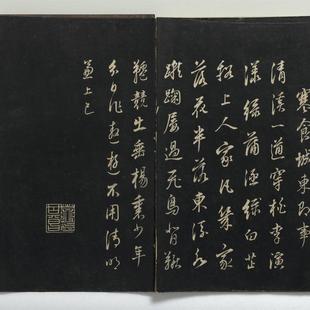 寒食城東即事
清溪一道穿桃李演
漾綠蒲涵綠白芷
溪上人家凡幾家
落花半落東流水
蹴踘屢過飛鳥背鞦
韆競出垂楊裏少年
分日作遨遊不用清明
兼上巳